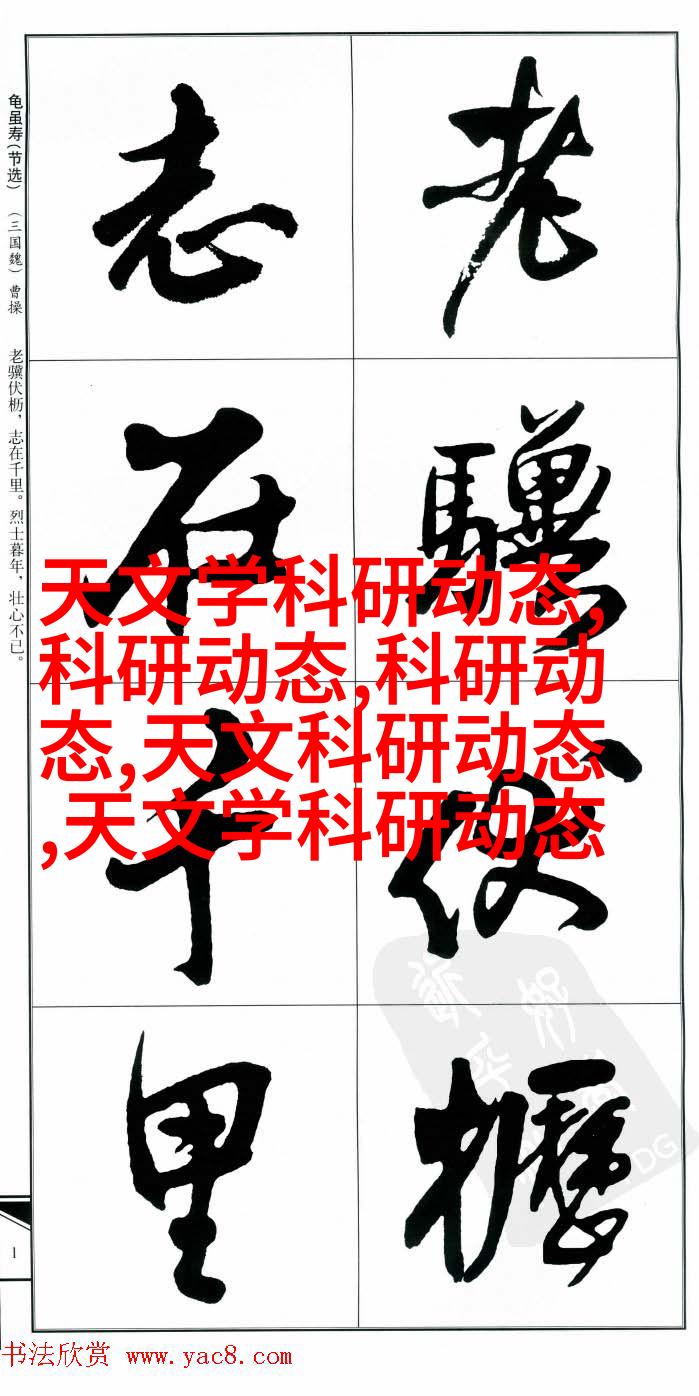 龟虽寿(节选) (三国魏) 曹操 老骥伏枥，志在千里。烈士暮年，壮心不已。
老驥伏櫪
志在千里
天文学科研动态,
科研动态,科研动
态,天文科研动态
,天文学科研动态
1
DG
书法欣赏 www.yac8.com